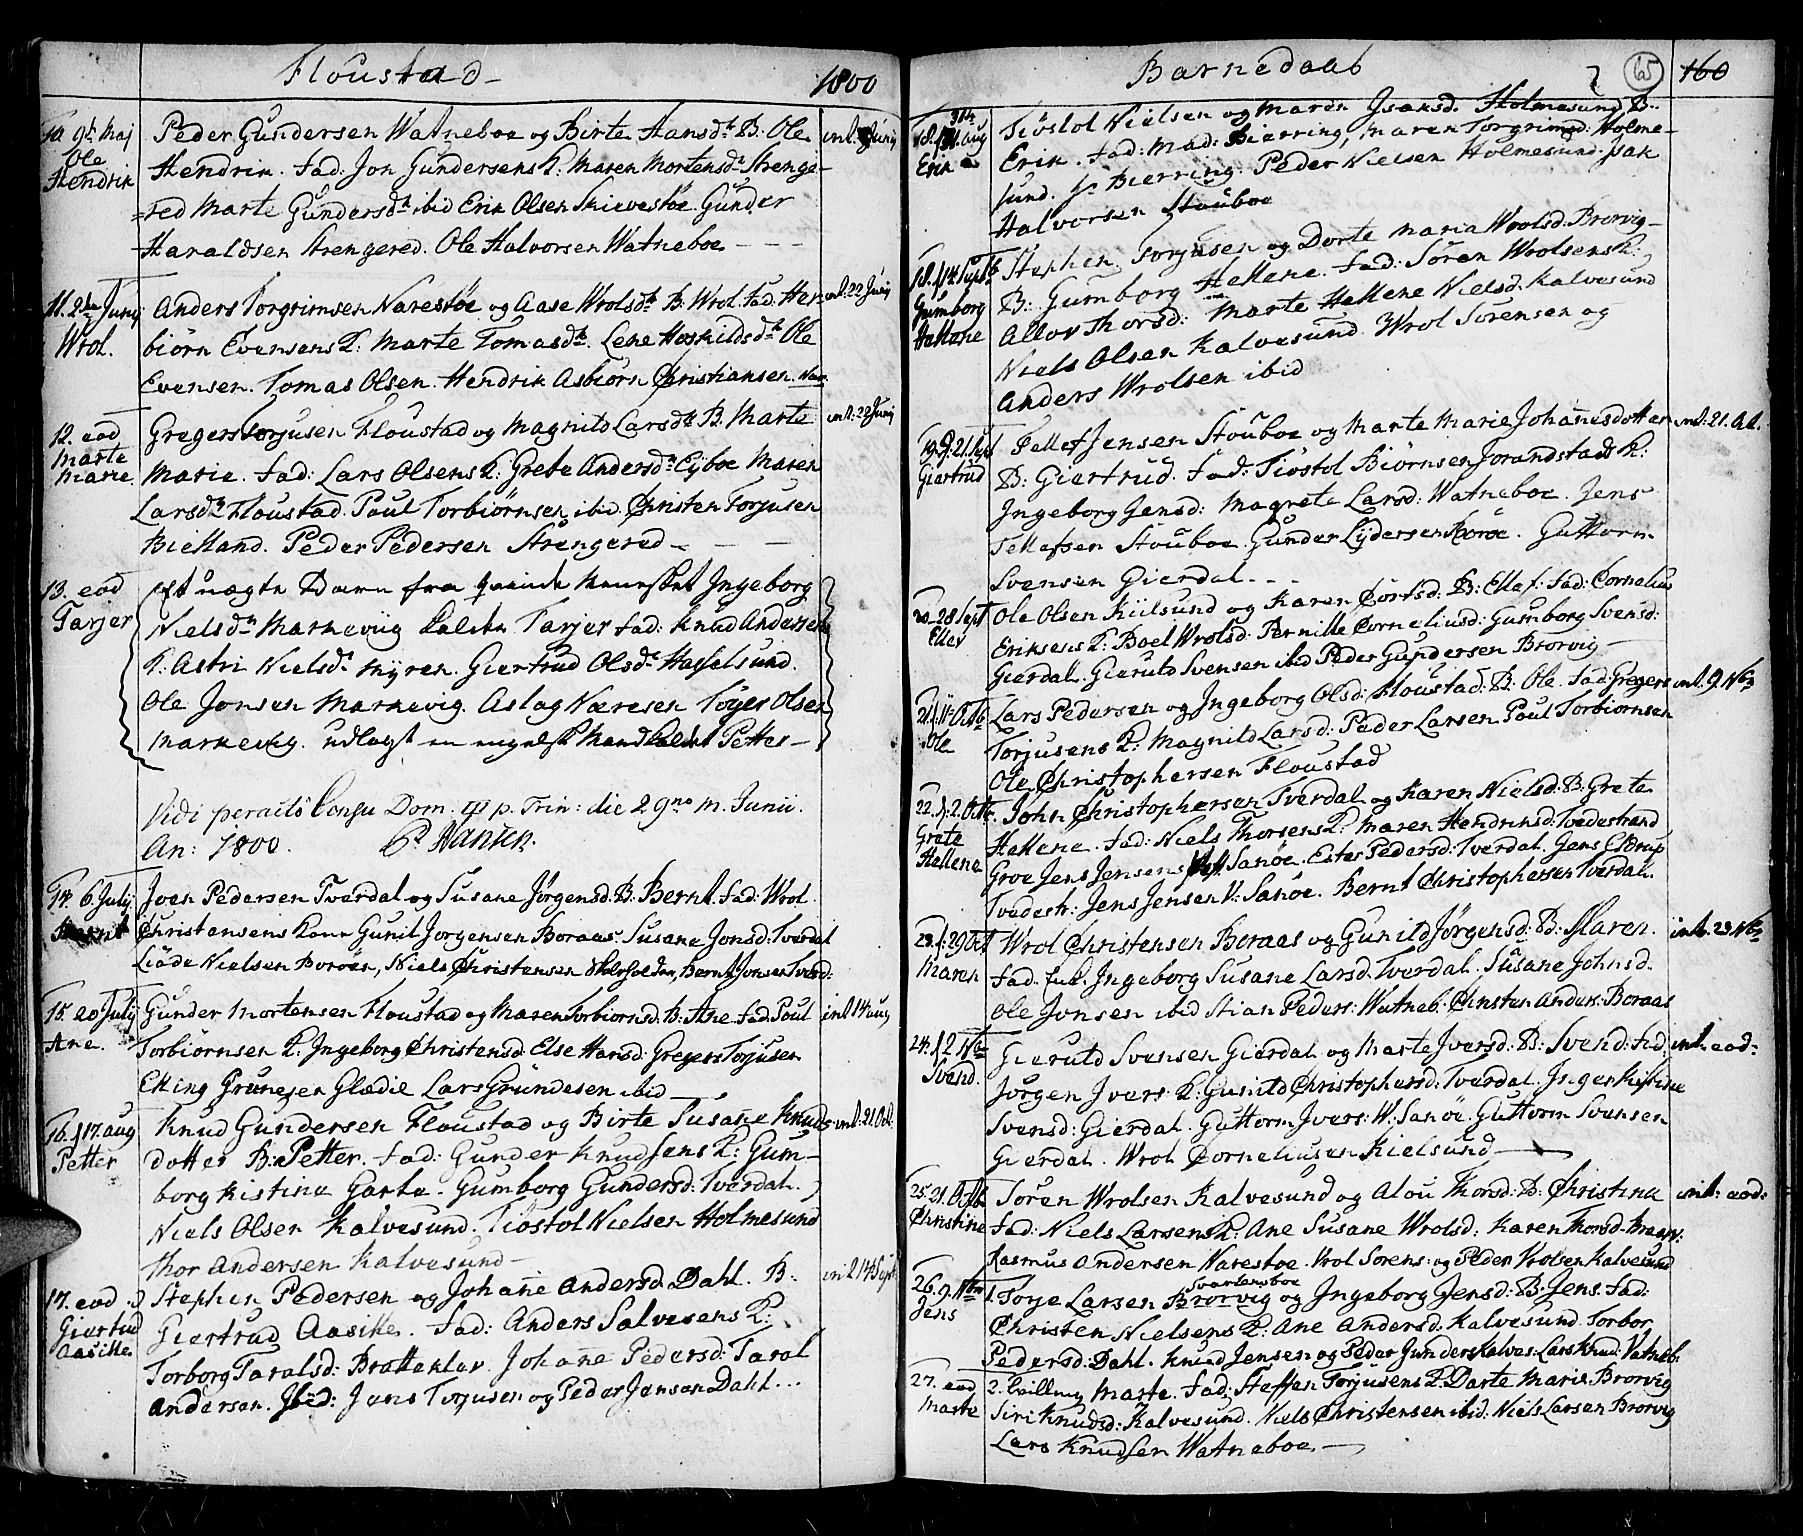 Floustad
1800
10. 9de Maj
Ole
Hendrik
Peder Gundersen Watneboe og Birte Hansdr B: Ole
Hendrik. fad: Jon Gundersens K: Maren Mortensdr Strenge-
=red Marte Gundersdr ibid Erik Olsen Skievestøe Gunder
Haraldsen Strengered. Ole Halvorsen Watneboe
11. 2den Juny
Wrol.
Anders Torgrimsen Narestøe og Aase Wrolsdr B: Wrol. fad: Her
biörn Evensens K: Marte Tomasdr. Lene Hoskildsdr Ole
Evensen. Tomas Olsen. Hendrik Asbiörn Christiansen. Nar.
int. 22 Junj
12. eod
Marte
Marie.
Gregers Torjusen Floustad og Magnild Larsdr B: Marte
Marie. fad: Lars Olsens K: Grete Andersdr Eyboe Maren
Larsdr Floustad. Paul Torbiörnsen ibid. Christen Torjusen
Bielland. Peder Pedersen Strengered
int. 22 Junj
13. eod
Tarjer
Et uægte Barn fra qvinde Ingeborg
Nielsdr Markeviig kaldte Tarjer fad: Knud Andersen
K: Astri Nielsdr Myren. Giertrud Olsdr Hasselsund.
Ole Jonsen Markevig. Aslag Næresen Töger Olsen
Markevig. udlagt en engelsk Mand kaldet Petter
Vidi peractô Censu Dom. p. Trin: die 29no m. Junii.
An: 1800. P. Hansen.
14. 6. July
Jven Pedersen Tverdal og Susane Jørgensd. B: Bernt. fad: Wrol
Christensens Kone Gunil Jorgensen Boraas. Susane Jonsd: Tverdal
Liöde Nielsen Boröen, Niels Christensen, Bernt Jonsen Tverd:
15. 20 July
Ane.
Gunder Mortensen Floustad og Maren Torbiornsd. B: Ane fad: Poul
Torbiörnsen K: Ingeborg Christensd. Else Hansd. Gregers Torjusen
Elling Grunesen Glædie Lars Gründesen ibid
int 14 aug
16. f 17. aug
Petter
Knud Gundersen Floustad og Birte Susane Knuds
dotter B: Petter. fad: Gunder Knudsens K: Gum-
borg Kistina Garta. Gumborg Gundersd: Tverdal.
Niels Olsen Kalvesund. Tiöstol Nielsen Holmesund
Thor Andersen Kalvesund
int. 21. Oct.
17. eod
Giertrud
Aasille.
Stephen Pedersen og Johane Andersd. Dahl. B:
Giertrud Aasille. fad: Anders Salvesens K:
Torborg Taralsd: Bratteklev. Johane Pedersd: Tarol
Andersen. Ibid: Jens Torjusen og Peder Jensen Dahl...
int 14 Sept
Barnedaab
65
160
18. aug
Erik
Tiöstol Nielsen og Maren Isaksd. Holmesund B:
Erik. fad: Mad: Bierring, Maren Torgrimsd: Holme-
sund. Hr Bierring. Peder Nielsen Holmesund. Isak
Halvorsen Stouboe
18. f 14 Septb
Gumborg
Hellene
Stephen Torjusen og Dorte Maria Wrolsd. Brorvig
B: Gumborg Hellene. fad: Sören Wrolsens K:
Allov Thorsd: Marte Hellene Nielsd. Kalvesund
Niels Olsen Kalvesund. Wrol Sorensen og
Anders Wrolsen ibid
19. d. 21. Sept
Giertrud
Tellef Jensen Stouboe og Marte Marie Johanesdotter
B: Giertrud. fad: Tiöstol Biörnsen Jorandstads K:
Ingeborg Jensd: Magrete Larsd: Watneboe. Jens
Tellefsen Stouboe. Gunder Lydersen. Guttorm
Svensen Gierdal.
int. 21. Oct.
20. 28 Sept
Ellev
Ole Olsen Kiilsund og Karen Cortsd. B: Ellef: fad: Cornelius
Eriksens K: Boel Wrolsd. Pernille Corneliusd: Gumborg Svensd:
Gierdal. Gieruld Svensen ibid Peder Gundersen Brorvig
21. f 11 Octb
Ole
Lars Pedersen og Ingeborg Olsd: Floustad: B: Ole. fad: Gregers
Torjusens K: Magnild Larsd: Peder Larsen Poul Torbiörnsen
Ole Christophersen Floustad
int. 9. Nbr
22. f. 2. Octb.
Grete
Hellene
John Christophersen Tverdal og Karen Nielsd: B: Grete
Hellene. fad: Niels Thorsens K: Maren Hendriksd: Tvedestrand
Groe Jens Jensens Sanöe. Ester Pedersd: Tverdal. Jens Eldrup
Tvedestr: Jens Jensen V: Sanöe. Bernt Christophersen Tverdal.
23. f. 29 Oct
Maren
Wrol Christensen Boraas og Gunild Jörgensd: B: Maren.
fad. Ingeborg Susane Larsd. Tverdal. Susane Johnsd.
Ole Jonsen ibid Stian Peders: Watneb. Christen Anders: Boraas
int. 23 Nbr
24. f 2 Nbr
Svend.
Gieruld Svensen Gierdal og Marte Iversd: B: Svend: fad:
Jörgen Ivers: K: Gunild Christophersd: Tverdal. Inger Kistine
Svensd: Gierdal. Guttorm Ivers: W: Sanöe. Guttorm Svensen
Gierdal. Wrol Corneliusen Kielsund
int. eod:
25. 21. Octb
Christine
Sören Wrolsen Kalvesund og Alou Thorsd: B: Christina
fad: Niels Larsens K: Ane Susane Wrolsd. Karen Thorsd: Braar:
Rasmus Andersen Narestoe. Wrol Sorens: og Peder Wrolsen Kalvesund
int: eod:
26. 9. Nbr
Jens
Svartensboe
1. Torje Larsen Brorvig og Ingeborg Jensd: B: Jens. fad:
Christen Nielsens K: Ane Andersd. Kalvesund. Torbor
Pedersd: Dahl. Knud Jensen og Peder Gunders Kalves. Lars Knud: Vatneb:
27. eod
Marte
2. tvilling Marte. fad: Steffen Torjusens K: Darte Marie. Brorvig
Siri Knudsd: Kalvesund. Niels Christensen ibid: Niels Larsen Brorvig
Lars Knudsen Watneboe